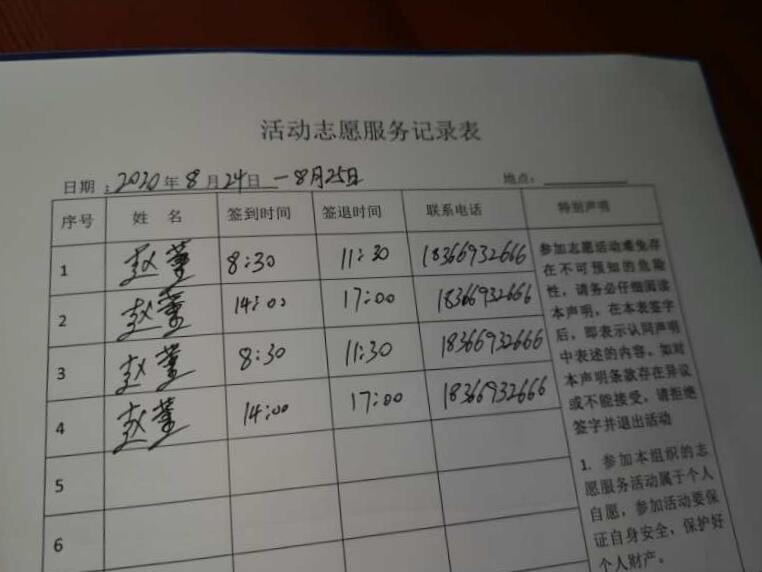 活动志愿服务记录表
日期：2020年8月24日—8月25日 地点：
序号 姓 名 签到时间 签退时间 联系电话 特别声明
1 赵 8:30 11:30 18366932666
2 赵 14:00 17:00 18366932666
3 赵 8:30 11:30 18366932666
4 赵 14:00 17:00 18366932666
5
6
参加志愿活动难免存
在不可预知的危险
性，请务必仔细阅读
本声明，在本表签字
后，即表示认同声明
中表述的内容。如对
本声明条款存在异议
或不能接受，请拒绝
签字并退出活动
1. 参加本组织的志
愿服务活动属于个人
自愿，参加活动要保
证自身安全，保护好
个人财产。